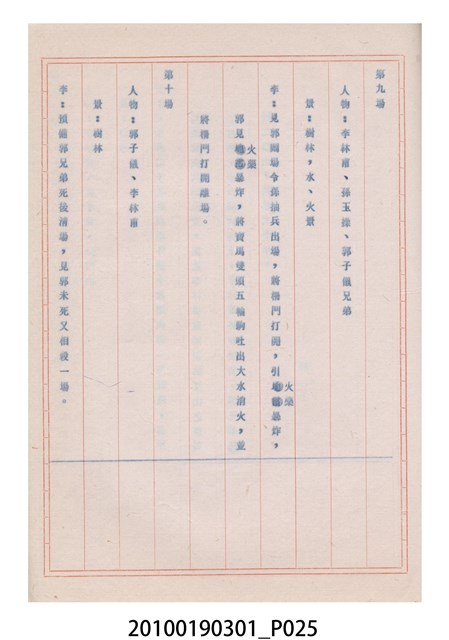 第九場
人物：李林甫、孫玉搖、郭子儀兄弟
景：樹林，水、火景
李：見郭閙場令孫抽兵出場，將橋門打開，引火藥暴炸，
郭見火藥暴炸，將寶馬雙頭五輪駒吐出大水消火，並
將橋門打開離場。
第十場
人物：郭子儀、李林甫
景：樹林
李：預備郭兄弟死後清場，見郭未死又相殺一場。
20100190301_P025